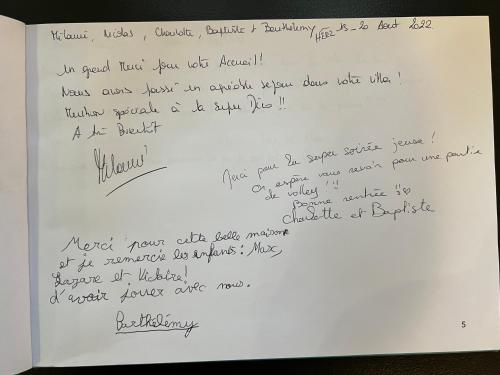 Mélanie, Nicolas, Charlotte, Baptiste & Barthélémy 13 - 20 Août 2022.
Un grand Merci pour votre Accueil!
Nous avons passé un agréable séjour dans votre villa!
Mention spéciale à la super Déco!!
A très Bientôt
Mélanie
Merci pour la super soirée jeuse!
On espère vous revoir pour une partie
de volley!!!
Bonne rentrée !!♡
Charlotte et Baptiste
Merci pour cette belle maison
et je remercie les enfants: Max,
Lazare et Victoire!
d'avoir jouer avec nous.
Barthélémy
5